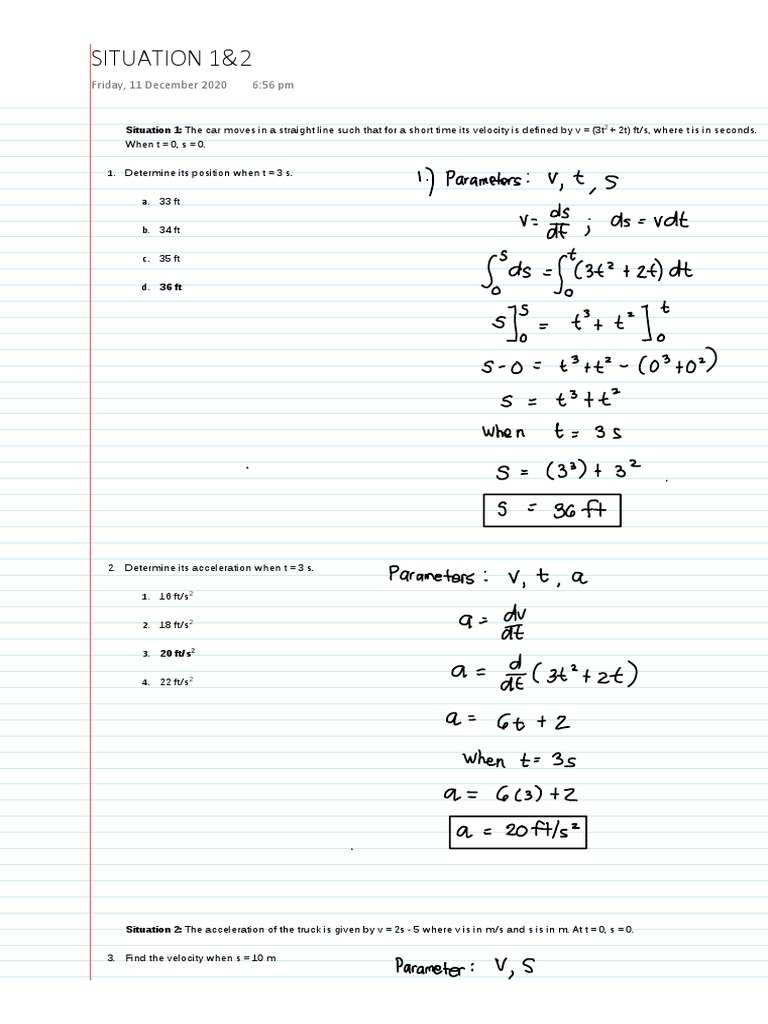 SITUATION 1&2
Friday, 11 December 2020 6:56 pm
Situation 1: The car moves in a straight line such that for a short time its velocity is defined by v = (3t² + 2t) ft/s, where t is in seconds.
When t = 0, s = 0.
1. Determine its position when t = 3 s.
a. 33 ft
b. 34 ft
c. 35 ft
d. 36 ft
1.) Parameters: v, t, s
v = ds/dt ; ds = vdt
∫₀ˢ ds = ∫₀ᵗ (3t² + 2t) dt
s]₀ˢ = t³ + t²]₀ᵗ
s - 0 = t³ + t² - (0³ + 0²)
s = t³ + t²
when t = 3 s
s = (3³) + 3²
s = 36 ft
2. Determine its acceleration when t = 3 s.
1. 16 ft/s²
2. 18 ft/s²
3. 20 ft/s²
4. 22 ft/s²
Parameters: v, t, a
a = dv/dt
a = d/dt (3t² + 2t)
a = 6t + 2
when t = 3s
a = 6(3) + 2
a = 20 ft/s²
Situation 2: The acceleration of the truck is given by v = 2s - 5 where v is in m/s and s is in m. At t = 0, s = 0.
3. Find the velocity when s = 10 m
Parameter: v, s